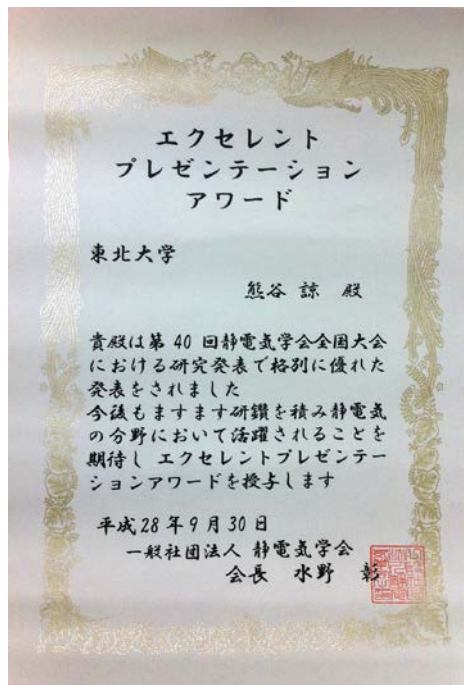 エクセレント
プレゼンテーション
アワード
東北大学
熊谷 諒 殿
貴殿は第 40 回静電気学会全国大会
における研究発表で格別に優れた
発表をされました
今後もますます研鑽を積み静電気
の分野において活躍されることを
期待し エクセレントプレゼンテー
ションアワードを授与します
平成28年9月30日
一般社団法人 静電気学会
会長 水野 彰